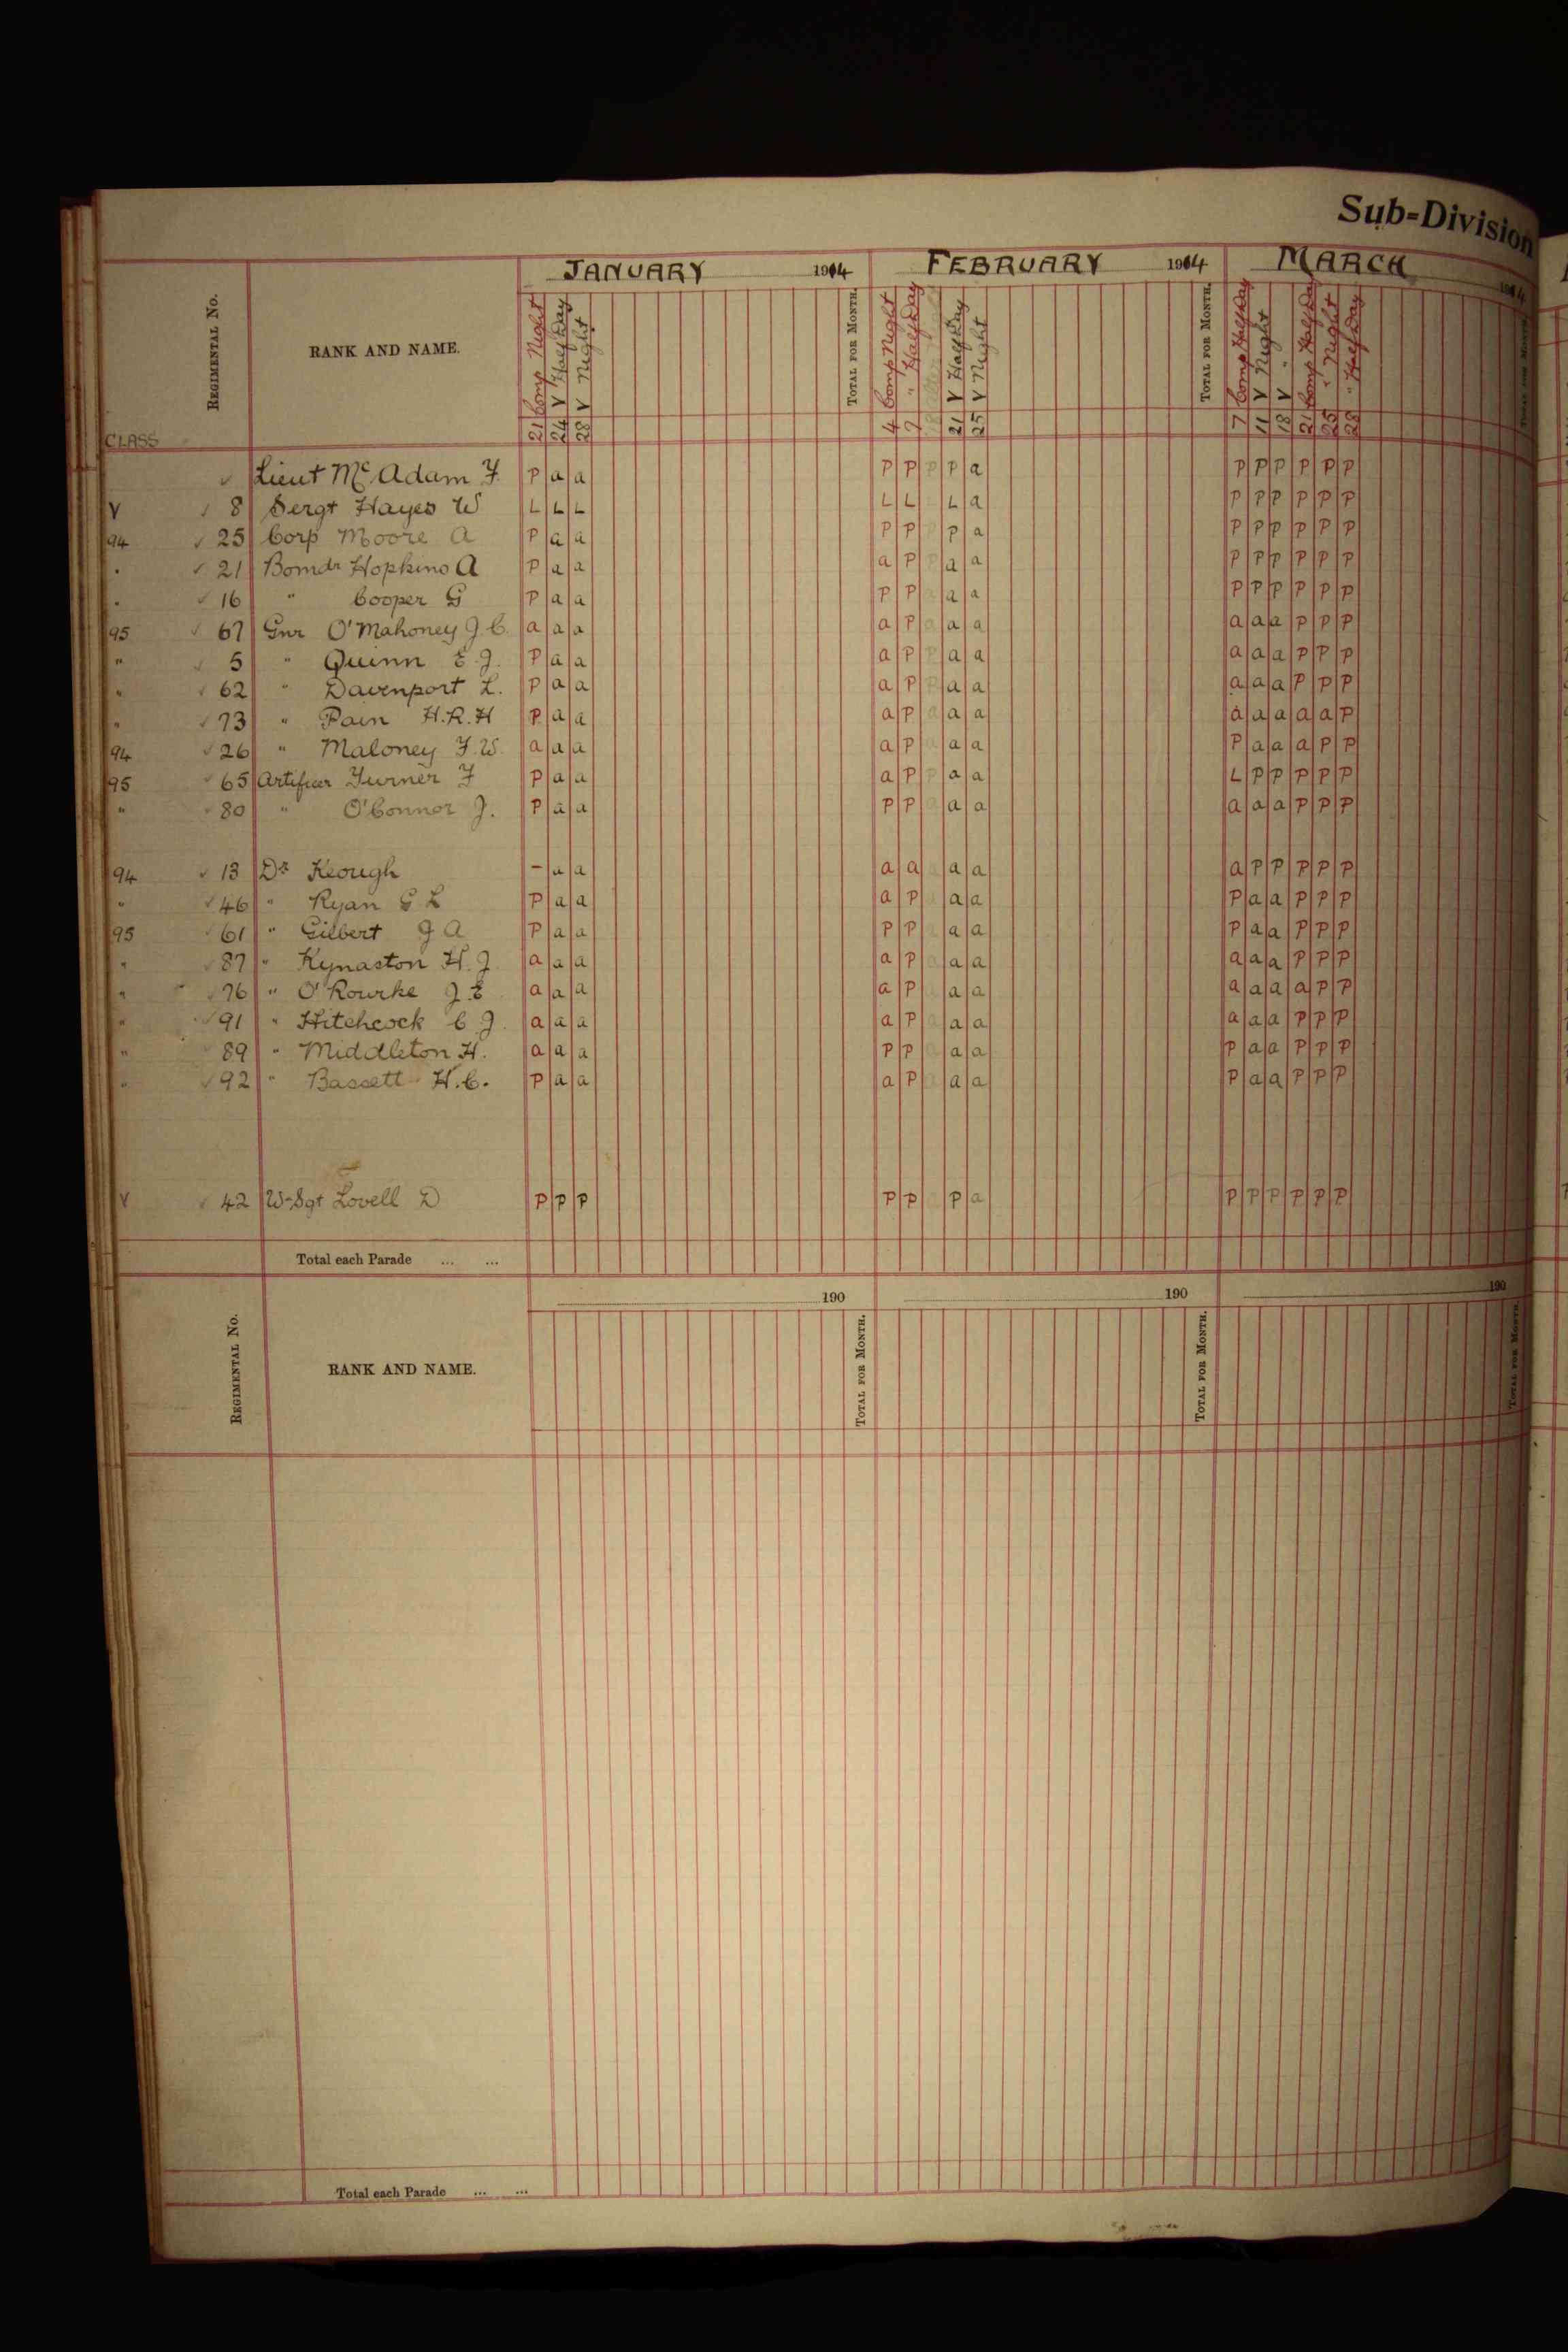 Sub-Division
JANUARY 1914 FEBRUARY 1914 MARCH 1914
CLASS REGIMENTAL No. RANK AND NAME. 21 Comp Night 24 V Half Day 28 V Night TOTAL FOR MONTH. 4 Comp Night 7 " Half Day 21 V Half Day 25 V Night TOTAL FOR MONTH. 7 Comp Half Day 11 V Night 18 V " 21 Comp Half Day 25 " Night 28 " Half Day TOTAL FOR MONTH.
✓ Lieut McAdam F P a a P P P P a P P P P P P
V ✓ 8 Sergt Hayes W L L L L L L a P P P P P P
94 ✓ 25 Corp Moore A P a a P P P P a P P P P P P
" ✓ 21 Bomdr Hopkins A P a a a P P a a P P P P P P
" ✓ 16 " Cooper G P a a P P a a a P P P P P P
95 ✓ 67 Gnr O'Mahoney J C a a a a P a a a a a a P P P
" ✓ 5 " Quinn E J. P a a a P P a a a a a P P P
" ✓ 62 " Davenport L. P a a a P P a a a a a P P P
" ✓ 73 " Pain H.R.H P a a a P a a a a a a a a P
94 ✓ 26 " Maloney F.W. a a a a P a a P a a a P P
95 ✓ 65 Artificer Turner F P a a a P P a a L P P P P P
" ✓ 80 " O'Connor J. P a a P P a a a a a a P P P
94 ✓ 13 Dr Keough - a a a a a a a a P P P P P
" ✓ 46 " Ryan G L P a a a P a a P a a P P P
95 ✓ 61 " Gilbert J A P a a P P a a a P a a P P P
" ✓ 87 " Kynaston H.J a a a a P a a a a a a P P P
" ✓ 76 " O'Rourke J E a a a a P a a a a a a a P P
" ✓ 91 " Hitchcock C J. a a a a P a a a a a a P P P
" 89 " Middleton H. a a a P P a a P a a P P P
" ✓ 92 " Bassett H.C. P a a a P a a a P a a P P P
V ✓ 42 W-Sgt Lovell D P P P P P a P a P P P P P P
Total each Parade ... ...
190 190 190
REGIMENTAL No. RANK AND NAME. TOTAL FOR MONTH. TOTAL FOR MONTH. TOTAL FOR MONTH.
Total each Parade ... ...